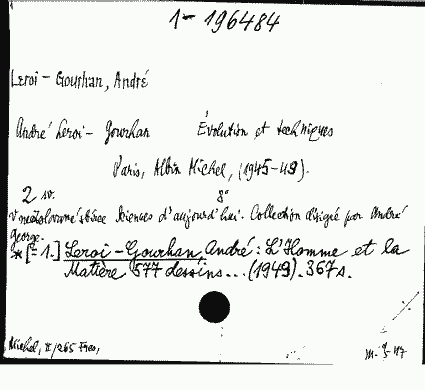 1- 196484
Leroi-Gourhan, André
André Leroi-Gourhan Évolution et techniques
Paris, Albin Michel, (1945-49).
2 sv. 8°
Sciences d'aujourd'hui. Collection dirigée par André
George.
*[=1.] Leroi-Gourhan, André: L'Homme et la
Matière 577 dessins...(1949). 367 s.
Michel, II/265 Frcs,